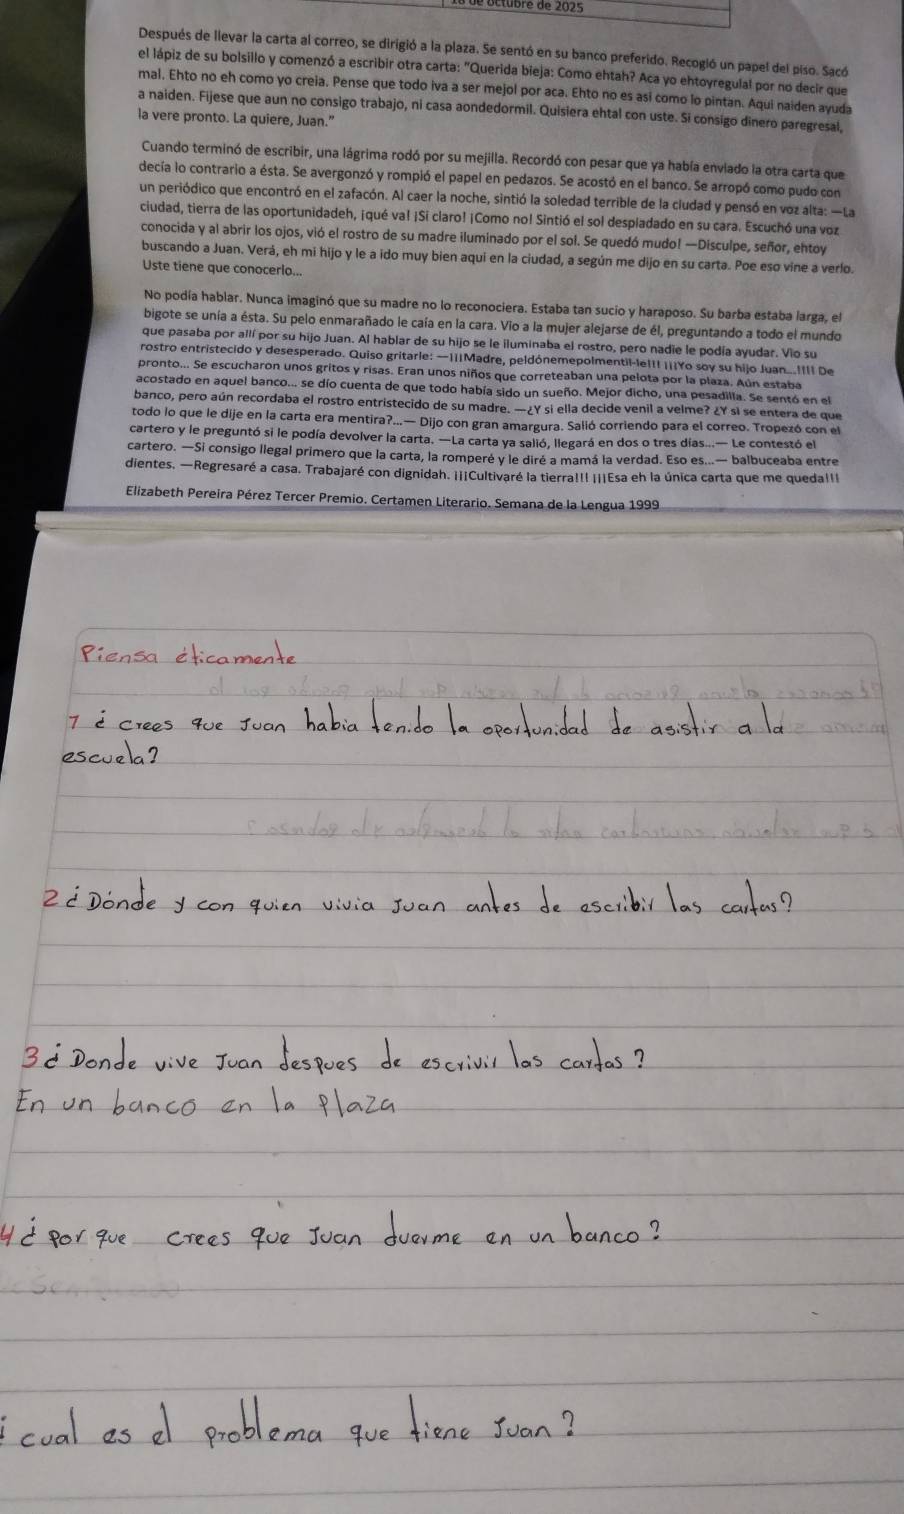 18 de octubre de 2025
Después de llevar la carta al correo, se dirigió a la plaza. Se sentó en su banco preferido. Recogió un papel del piso. Sacó
el lápiz de su bolsillo y comenzó a escribir otra carta: "Querida bieja: Como ehtah? Aca yo ehtoyregulal por no decir que
mal. Ehto no eh como yo creia. Pense que todo iva a ser mejol por aca. Ehto no es asi como lo pintan. Aqui naiden ayuda
a naiden. Fijese que aun no consigo trabajo, ni casa aondedormil. Quisiera ehtal con uste. Si consigo dinero paregresal,
la vere pronto. La quiere, Juan."
Cuando terminó de escribir, una lágrima rodó por su mejilla. Recordó con pesar que ya había enviado la otra carta que
decía lo contrario a ésta. Se avergonzó y rompió el papel en pedazos. Se acostó en el banco. Se arropó como pudo con
un periódico que encontró en el zafacón. Al caer la noche, sintió la soledad terrible de la ciudad y pensó en voz alta: —La
ciudad, tierra de las oportunidadeh, ¡qué va! ¡Si claro! ¡Como no! Sintió el sol despiadado en su cara. Escuchó una voz
conocida y al abrir los ojos, vió el rostro de su madre iluminado por el sol. Se quedó mudo! —Disculpe, señor, ehtoy
buscando a Juan. Verá, eh mi hijo y le a ido muy bien aquí en la ciudad, a según me dijo en su carta. Poe eso vine a verlo.
Uste tiene que conocerlo...
No podía hablar. Nunca imaginó que su madre no lo reconociera. Estaba tan sucio y haraposo. Su barba estaba larga, el
bigote se unía a ésta. Su pelo enmarañado le caía en la cara. Vio a la mujer alejarse de él, preguntando a todo el mundo
que pasaba por allí por su hijo Juan. Al hablar de su hijo se le iluminaba el rostro, pero nadie le podía ayudar. Vio su
rostro entristecido y desesperado. Quiso gritarle: —¡¡¡Madre, peldónemepolmentil-le!!! ¡¡¡Yo soy su hijo Juan...!!!! De
pronto... Se escucharon unos gritos y risas. Eran unos niños que correteaban una pelota por la plaza. Aún estaba
acostado en aquel banco... se dío cuenta de que todo había sido un sueño. Mejor dicho, una pesadilla. Se sentó en el
banco, pero aún recordaba el rostro entristecido de su madre. —¿Y si ella decide venil a velme? ¿Y si se entera de que
todo lo que le dije en la carta era mentira?...— Dijo con gran amargura. Salió corriendo para el correo. Tropezó con el
cartero y le preguntó si le podía devolver la carta. —La carta ya salió, llegará en dos o tres días...— Le contestó el
cartero. —Si consigo llegal primero que la carta, la romperé y le diré a mamá la verdad. Eso es...— balbuceaba entre
dientes. —Regresaré a casa. Trabajaré con dignidah. ¡¡¡Cultivaré la tierra!!! ¡¡¡Esa eh la única carta que me queda!!!
Elizabeth Pereira Pérez Tercer Premio. Certamen Literario. Semana de la Lengua 1999
Piensa éticamente
1 ¿ crees que Juan habia tenido la oportunidad de asistir a la
escuela?
2 ¿Dónde y con quien vivia Juan antes de escribir las cartas?
3 ¿ Donde vive Juan despues de escrivir las cartas?
En un banco en la plaza
4 ¿ por que crees que Juan duerme en un banco?
¿ cual es el problema que tiene Juan?